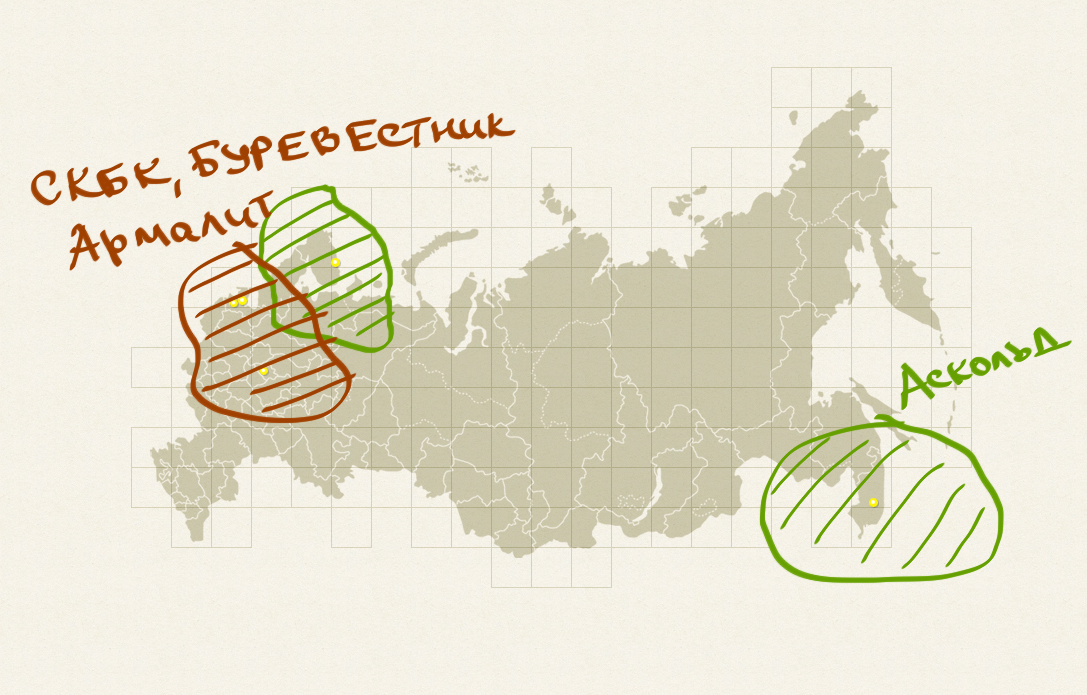 СКБК, БУРЕВЕСТНИК
Армалит
Аскольд